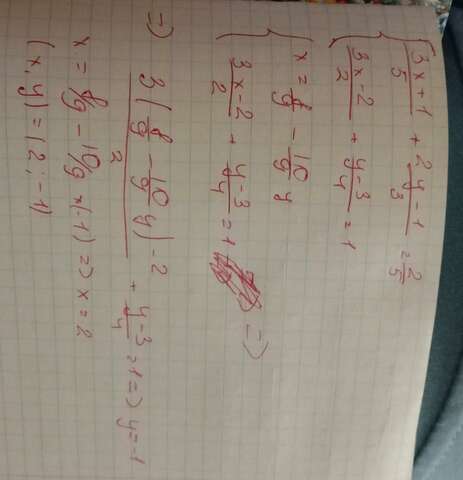 { (3x+1)/5 + (2y-1)/3 = 2/5
{ (3x-2)/2 + (y-3)/4 = 1
{ x = 8/9 - 10/9 y
{ (3x-2)/2 + (y-3)/4 = 1 =>
=> (3(8/9 - 10/9 y) - 2)/2 + (y-3)/4 = 1 => y = -1
x = 8/9 - 10/9 * (-1) => x = 2
(x, y) = (2; -1)